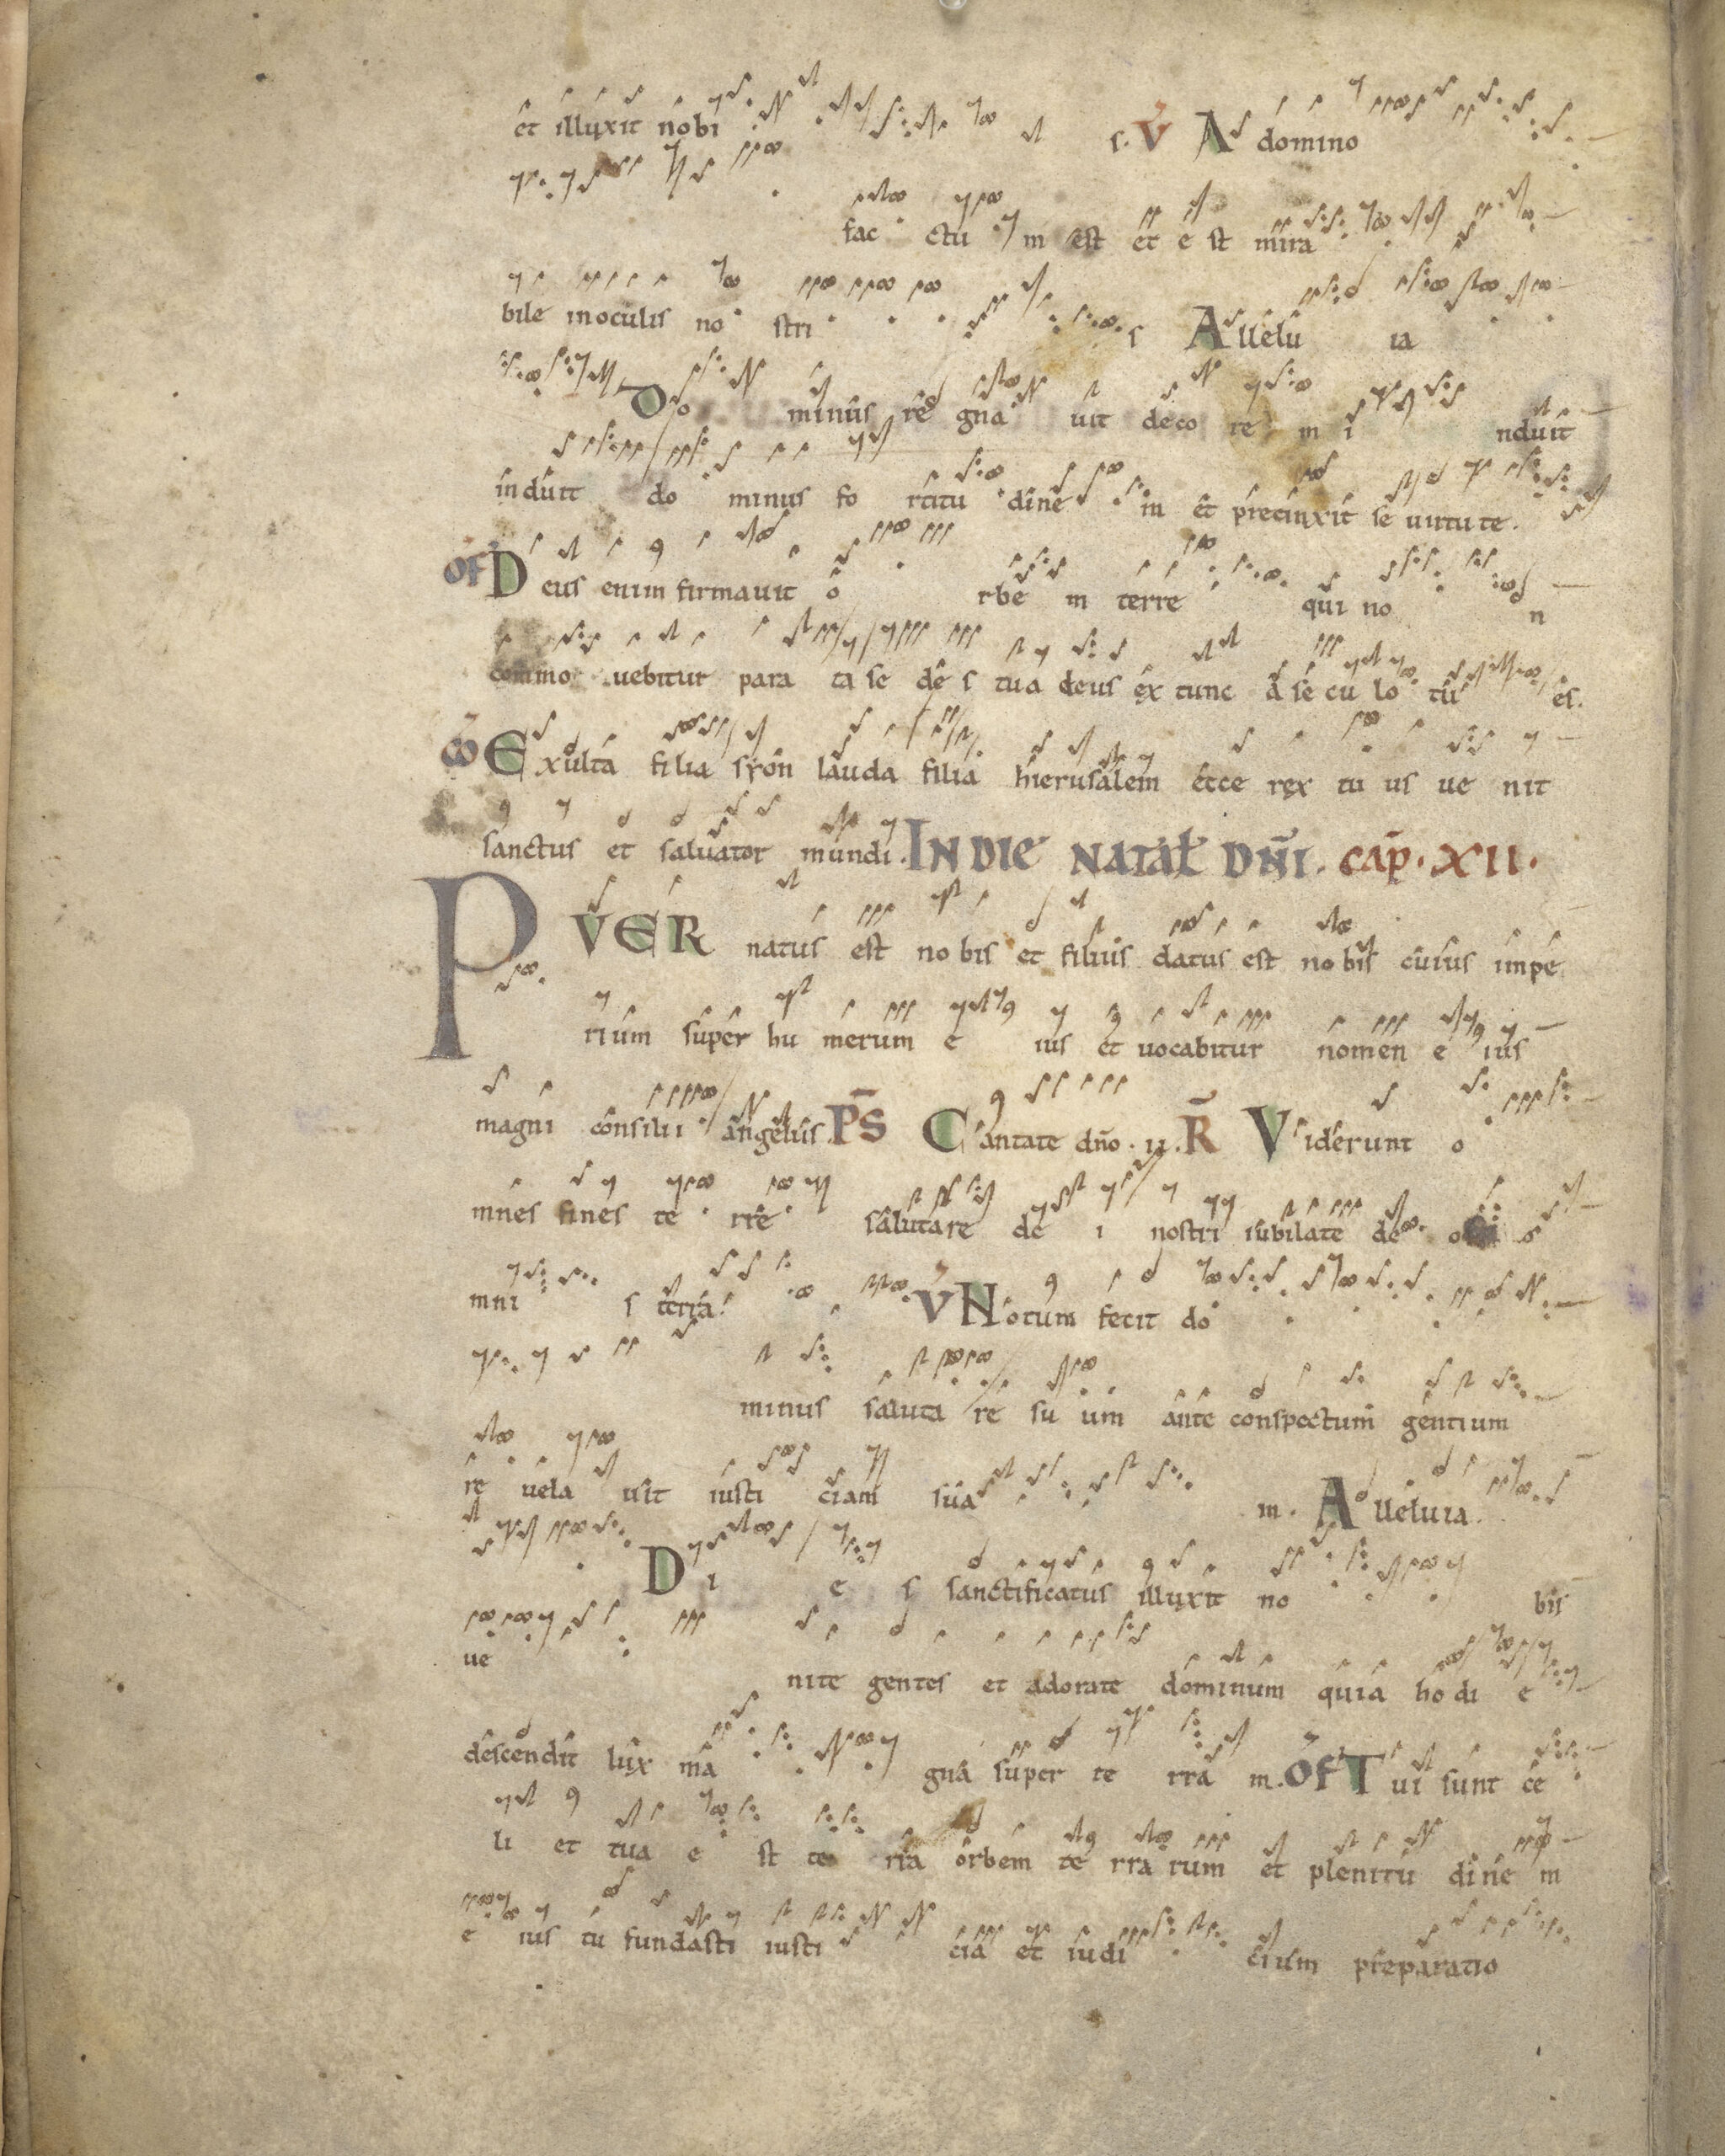 et illuxit nobi s. V A domino
fac ctu m est et e st mira
bile inoculis no stri s Allelu ia
Do minus re gna uit deco re m i nduit
induit do minus fo rtitu dine m et precinxit se uirtute.
OF Deus enim firmauit o rbe m terre qui no n
commo uebitur para ta se de s tua deus ex tunc a se cu lo tu es.
CO Exulta filia syon lauda filia hierusalem ecce rex tu us ue nit
sanctus et saluator mundi. IN DIE NATAL DNI. CAP. XII.
PVER natus est no bis et filius datus est nobis cuius impe
rium super hu merum e ius et uocabitur nomen e ius
magni consilii angelus. PS Cantate dno. ii. R Viderunt o
mnes fines te rre salutare de i nostri iubilate de o o
mni s terra. V Notum fecit do
minus saluta re su um ante conspectum gentium
re uela uit iusti ciam sua m. Alleluia.
Di e s sanctificatus illuxit no bis
ue nite gentes et adorate dominum quia ho di e
descendit lux ma gna super te rra m. OF Tui sunt ce
li et tua e st te rra orbem te rra rum et plenitu dine m
e ius tu fundasti iusti cia et iudi cium preparatio